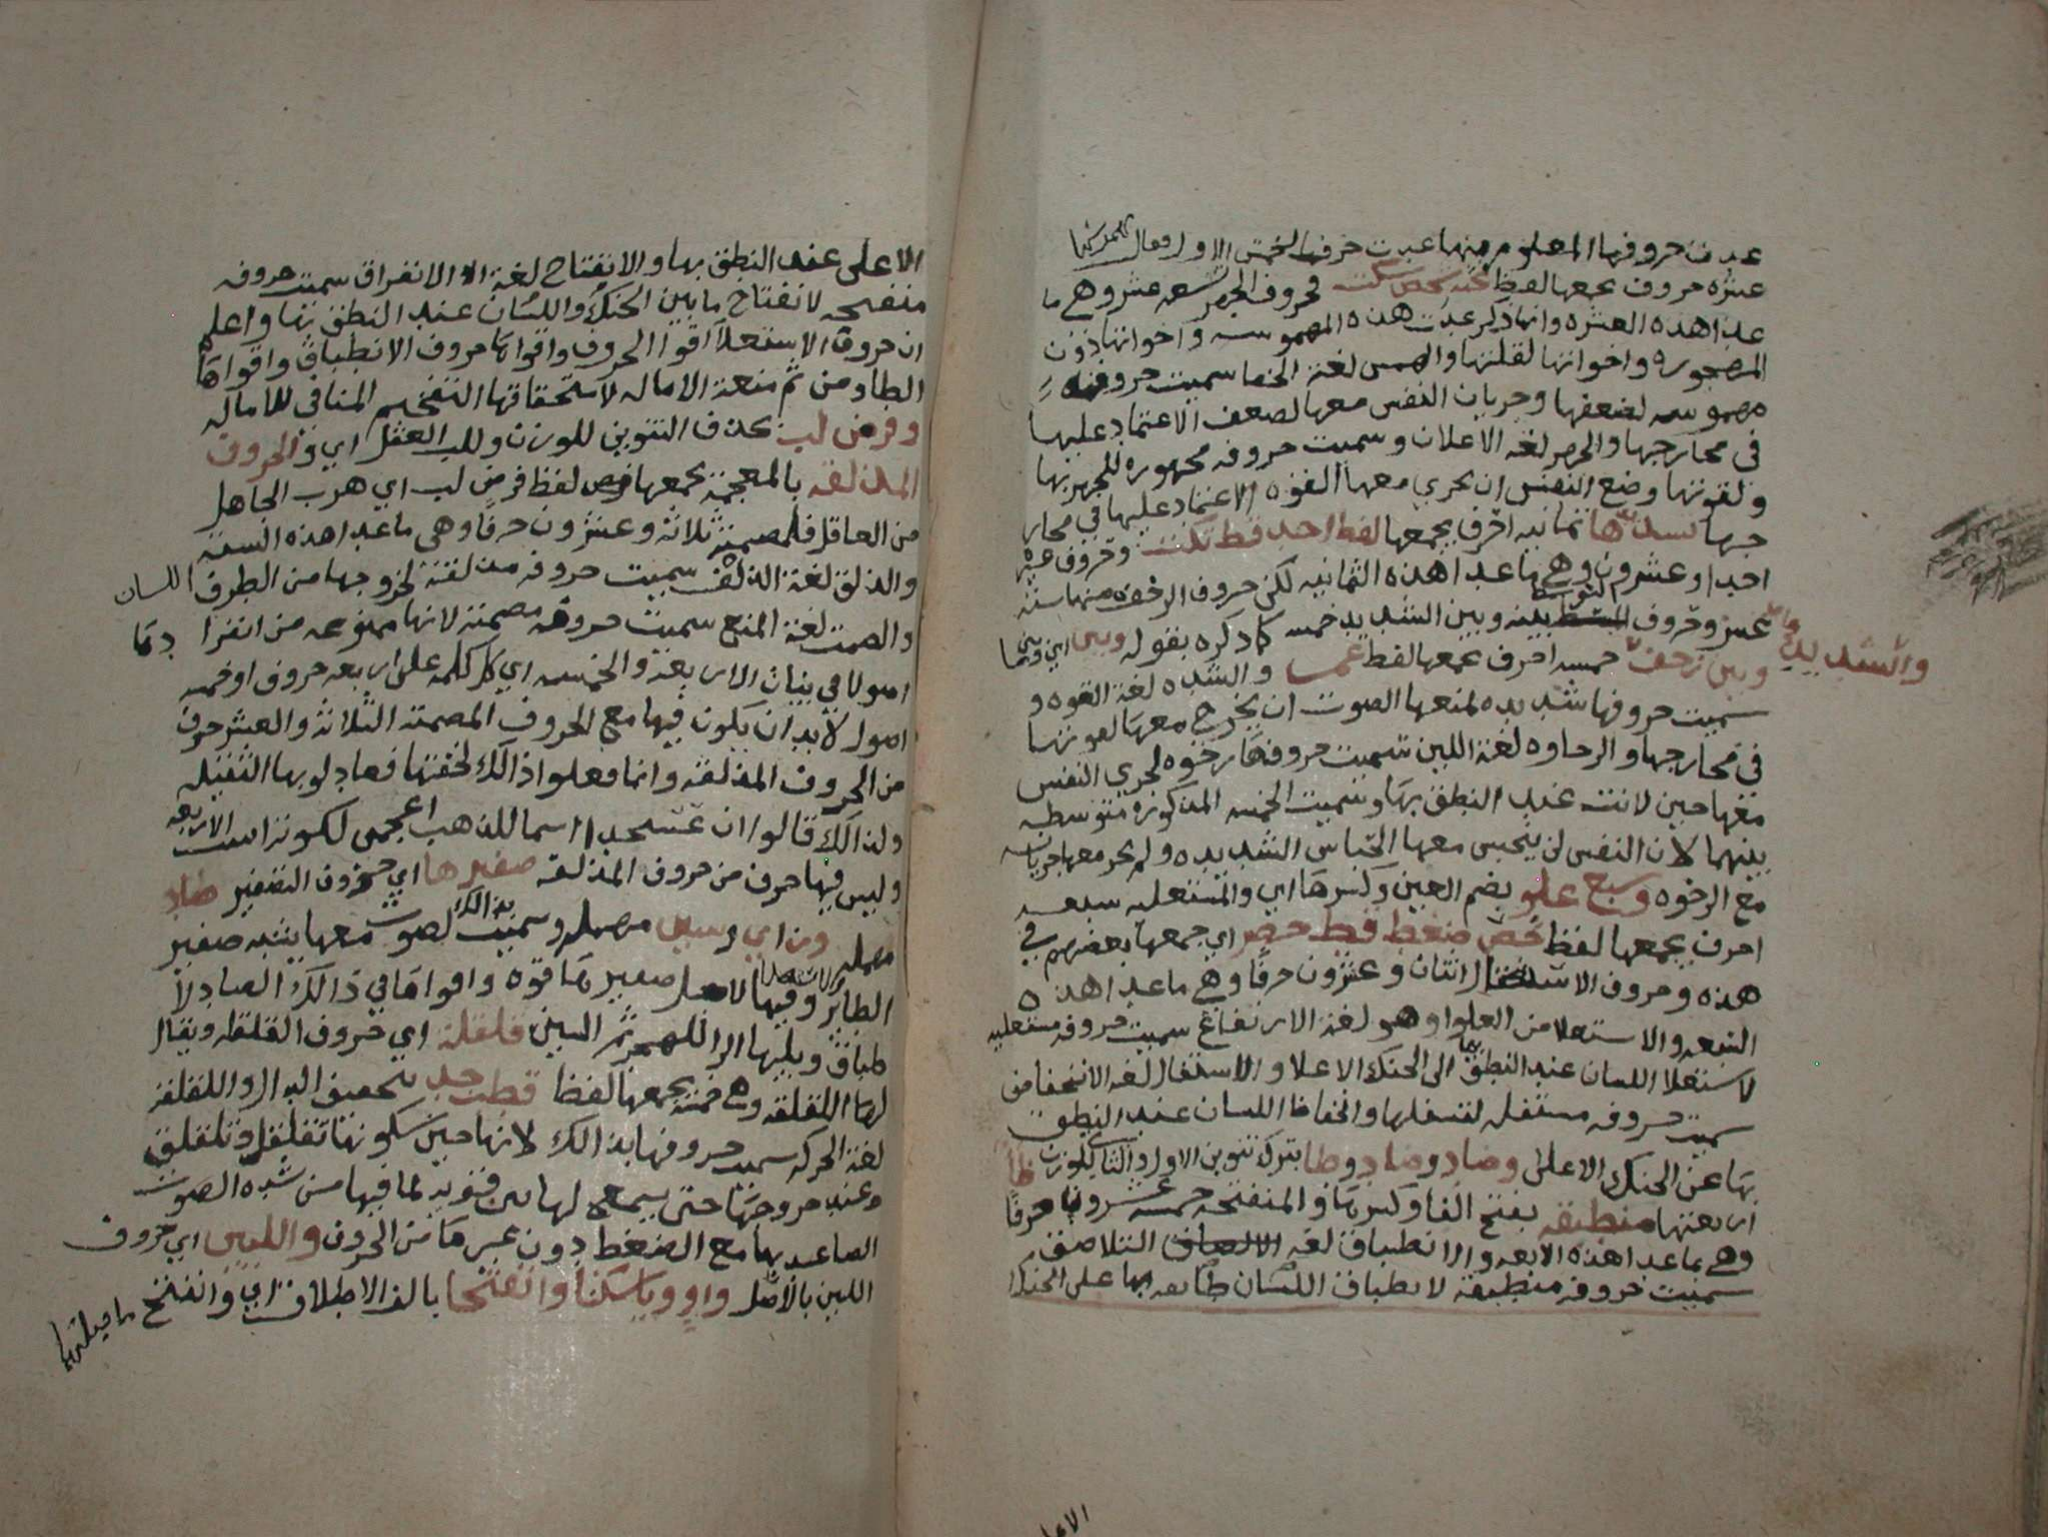 عدت حروفها المعلوم منها عدت حرفها الخمس الاول فقال
عشره حروف يجمعها لفظ فحثه شخص سكت فحروف الجهر تسعه عشر وهي ما
عدا هذه العشره وانما ذكر عدت هذه المهموسه واخواتها دون
المجهوره واخواتها لقلتها والهمس لغة الخفا سميت حروفه
مهموسه لضعفها وجريان النفس معها لضعف الاعتماد عليها
في مخارجها والجهر لغه الاعلان وسميت حروفه مجهوره للجهر بها
ولقوتها ومنع النفس ان يجري معها القوه الاعتماد عليها في مخار
جها شديدها ثمانيه احرف يجمعها لفظ اجد قط بكت وحروف غيره
احدا وعشرون وهي ما عدا هذه الثمانيه لكن حروف الرخوه منها ستة
عشر وحروف التوسط بينه وبين الشديد خمسه كما ذكره بقوله وبين اي وبينهما
وبين رخو خمسه احرف يجمعها لفظ عمر والشده لغة القوه و
والشديد
سميت حروفها شديده لمنعها الصوت ان يخرج معها لقوتها
في مخارجها والرخاوه لغة اللين سميت حروفها رخوه لجري النفس
معها حين لانت عند النطق بها وسميت الخمسه المذكوره متوسطه
بينهما لان النفس لن ينحبس معها انحباس الشديده ولم يجر معها جريانه
مع الرخوه وسبع علو بضم العين وكسرها اي والمستعليه سبعه
احرف يجمعها لفظ خص ضغط قظ حصر اي جمعها بعضهم في
هذه وحروف الاستفال اثنان وعشرون حرفا وهي ما عدا هذه
السبعه والاستعلا من العلو وهو لغة الارتفاع سميت حروفه مستعليه
لاستعلا اللسان عند النطق بها الى الحنك الاعلا والاستفال لغه الانخفاض
سميت حروفه مستفله لتسفلها وانخفاظ اللسان عند النطق
بها عن الحنك الاعلى وصاد وضاد وطا بترك تنوين الاول والثاني للوزن ظا
اربعتها منطبقه بفتح الفا وكسرها والمنفتحه خمسه عشرون حرفا
وهي ما عدا هذه الاربعه والانطباق لغه الالصاق التلاصق
سميت حروفه منطبقه لانطباق اللسان طائفه بها على الحنك
الاعلى
الاعلى عند النطق بها والانفتاح لغة الافتراق سميت حروفه
منفتحه لانفتاح ما بين الحنك واللسان عند النطق بها واعلم
ان حروف الاستعلا اقوا الحروف واقواها حروف الانطباق واقواها
الطا ومن ثم منعة الاماله لاستحقاقها التفخيم المنافي للاماله
وفر من لب بحذف التنوين للوزن وللب العقل اي والحروف
المذلقه بالمعجمة يجمعها لفظ فر من لب اي هرب الجاهل
من العاقل فالمصمتة ثلاثة وعشرون حرفا وهي ما عدا هذه الستة
والذلق لغة الذلق سميت حروفه مذلقة لخروجها من الطرف اللسان
والصمت لغة المنع سميت حروفه مصمتة لانها ممنوعه من انفرادها
اصولا في بنات الاربعة والخمسه اي كل كلمه على اربعه حروف او خمسه
اصول لابد ان يكون فيها مع الحروف المصمتة الثلاثة والعشر حرف
من الحروف المذلقه وانما فعلوا ذالك لخفتها فعادلو بها الثقيله
ولذالك قالوا ان عسجد اسما للذهب اعجمي لكونه الاربعه
وليس فيها حرف من حروف المذلقه صفيرها اي حروف الصفير صاد
مهمله وزاي وسين مهمله وسميت بذالك لصوت معها يشبه صفير
الطائر وفيها لاجل صفيرها قوه واقواها في ذالك الصاد لا
طباق ويليها الزا للجهر ثم السين قلقلة اي حروف القلقله ويقال
لها اللقلقه وهي خمسة يجمعها لفظ قطب جد بتخفيف الدال واللقلقه
لغة الحركه سميت حروفها بذالك لانها حين سكونها تقلقل وتلقلق
وعند خروجها حتى يسمع لها نبرة قويه لما فيها من شده الصوت
الصاعد بها مع الضغط دون غيرها من الحروف واللين اي حروف
اللين بالاصل واو ويا سكنا وانفتحا بالف الاطلاق اي وانفتح ما قبلهما